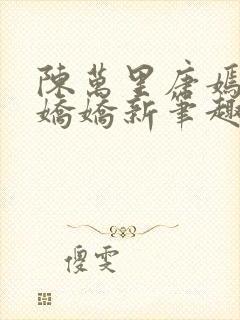 陳萬里唐嫣
嬌嬌新筆趣
傻雯